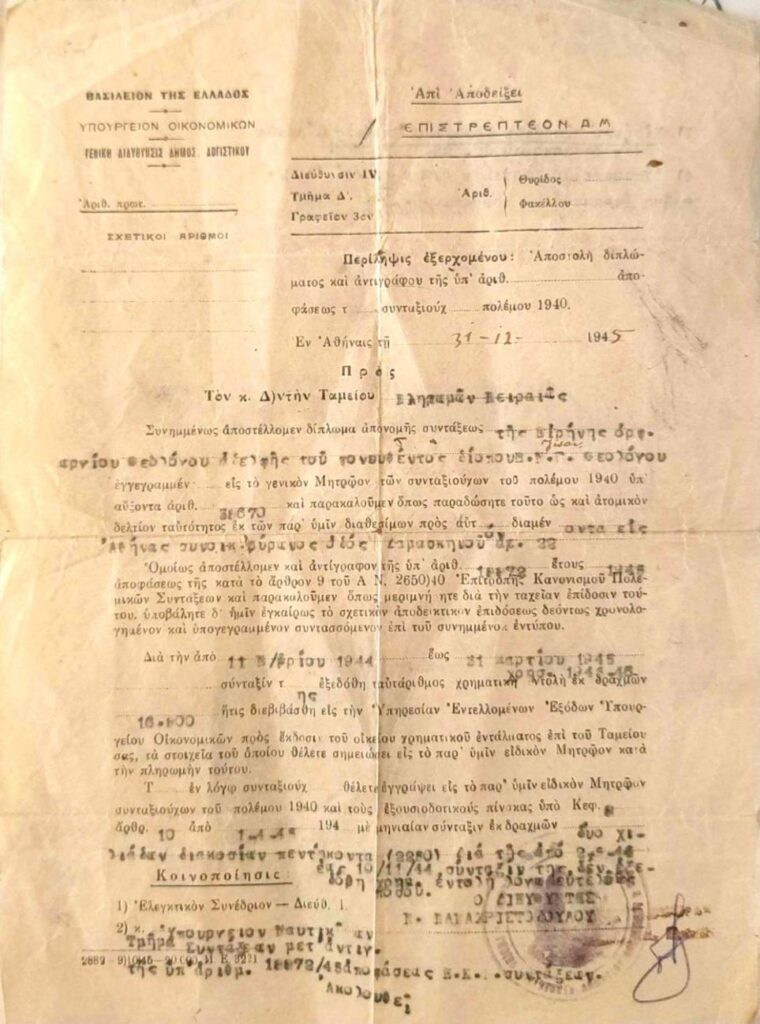 ΒΑΣΙΛΕΙΟΝ ΤΗΣ ΕΛΛΑΔΟΣ
ΥΠΟΥΡΓΕΙΟΝ ΟΙΚΟΝΟΜΙΚΩΝ
ΓΕΝΙΚΗ ΔΙΕΥΘΥΝΣΙΣ ΔΗΜΟΣ. ΛΟΓΙΣΤΙΚΟΥ
Ἀριθ. πρωτ.
ΣΧΕΤΙΚΟΙ ΑΡΙΘΜΟΙ
Ἀπὶ Ἀποδείξει
ΕΠΙΣΤΡΕΠΤΕΟΝ Δ.Μ
Διεύθυνσιν IV.
Τμῆμα Δ'.
Γραφεῖον 3ον
Ἀριθ.
Θυρίδος
Φακέλλου
Περίληψις ἐξερχομένου: Ἀποστολὴ διπλώ-
ματος καὶ ἀντιγράφου τῆς ὑπ' ἀριθ. ἀπο-
φάσεως τ συνταξιούχ πολέμου 1940.
Ἐν Ἀθήναις τῇ 31-12- 1945
Πρὸς
Τὸν κ. Δ)ντὴν Ταμείου Πληρωμῶν Πειραιῶς
Συνημμένως ἀποστέλλομεν δίπλωμα ἀπονομῆς συντάξεως τῆς Εἰρήνης ὀρφ.
Θεολόγου ἀδελφῆς τοῦ φονευθέντος δίοπου Β.Ν. Θεολόγου
ἐγγεγραμμέν εἰς τὸ γενικὸν Μητρῷον τῶν συνταξιούχων τοῦ πολέμου 1940 ὑπ'
αὔξοντα ἀριθ. 38670 καὶ παρακαλοῦμεν ὅπως παραδώσητε τοῦτο ὡς καὶ ἀτομικὸν
δελτίον ταὐτότητος ἐκ τῶν παρ' ὑμῖν διαθεσίμων πρὸς αὐτ διαμέν οντα εἰς
Ἀθήνας ὁδὸς ἀρ. 22
Ὁμοίως ἀποστέλλομεν καὶ ἀντίγραφον τῆς ὑπ' ἀριθ. 18872 ἔτους 1945
ἀποφάσεως τῆς κατὰ τὸ ἄρθρον 9 τοῦ Α Ν. 2650)40 Ἐπιτροπῆς Κανονισμοῦ Πολε-
μικῶν Συντάξεων καὶ παρακαλοῦμεν ὅπως μεριμνή ητε διὰ τὴν ταχεῖαν ἐπίδοσιν τού-
του, ὑποβάλητε δ' ἡμῖν ἐγκαίρως τὸ σχετικὸν ἀποδεικτικὸν ἐπιδόσεως δεόντως χρονολο-
γημένον καὶ ὑπογεγραμμένον συντασσόμενον ἐπὶ τοῦ συνημμένου ἐντύπου.
Διὰ τὴν ἀπὸ 11 Ν/βρίου 1944 ἕως 31 Μαρτίου 1945
σύνταξίν τ ης ἐξεδόθη ταὐτάριθμος χρηματικὴ ντολὴ ἐκ δραχμῶν
16.800 ἥτις διεβιβάσθη εἰς τὴν Ὑπηρεσίαν Ἐντελλομένων Ἐξόδων Ὑπουρ-
γείου Οἰκονομικῶν πρὸς ἔκδοσιν τοῦ οἰκείου χρηματικοῦ ἐντάλματος ἐπὶ τοῦ Ταμείου
σας, τὰ στοιχεῖα τοῦ ὁποίου θέλετε σημειώσει εἰς τὸ παρ' ὑμῖν εἰδικὸν Μητρῷον κατὰ
τὴν πληρωμὴν τούτου.
Τ ἐν λόγῳ συνταξιοῦχ θέλετε ἐγγράψει εἰς τὸ παρ' ὑμῖν εἰδικὸν Μητρῷον
συνταξιούχων τοῦ πολέμου 1940 καὶ τοὺς ἐξουσιοδοτικοὺς πίνακας ὑπὸ Κεφ.
ἄρθρ. 10 ἀπὸ 1-4-45 194 μὲ μηνιαίαν σύνταξιν ἐκ δραχμῶν δύο χι-
λιάδων διακοσίων πεντήκοντα (2250) διὰ τῆς ἀπὸ
ἕως 10/11/44 σύνταξιν της δὲν ἐξε-
δόθη
Κοινοποίησις:
Ο ΔΙΕΥΘΥΝΤΗΣ
ΠΑΠΑΧΡΙΣΤΟΔΟΥΛΟΥ
1) Ἐλεγκτικὸν Συνέδριον — Διεύθ. 1.
2) κ. Ὑπουργεῖον Ναυτικ ῶν
Τμῆμα Συντάξεων μετ' ἀντιγ.
τῆς ὑπ' ἀριθμ. 18872/45 ἀποφάσεως Ε.Κ. συντάξεων.
Ἀκολουθεῖ